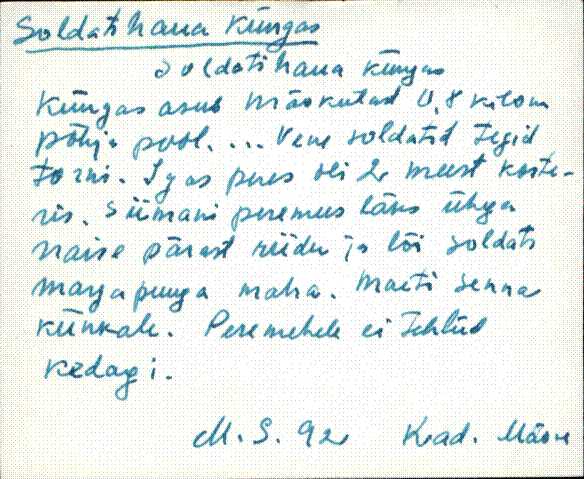 Soldatihaua Küngas
Soldatihaua küngas
Küngas asub Mäekülast 0,8 kilom
põhja pool. ... Vene soldatid tegid
torni. Igas peres oli 2 meest korte-
ris. Siimani peremees läks ühega
naise pärast riidu ja lõi soldati
margapuuga maha. Maeti senna
künkale. Peremehele ei tehtud
kedagi.
M. S. 92 Kad.